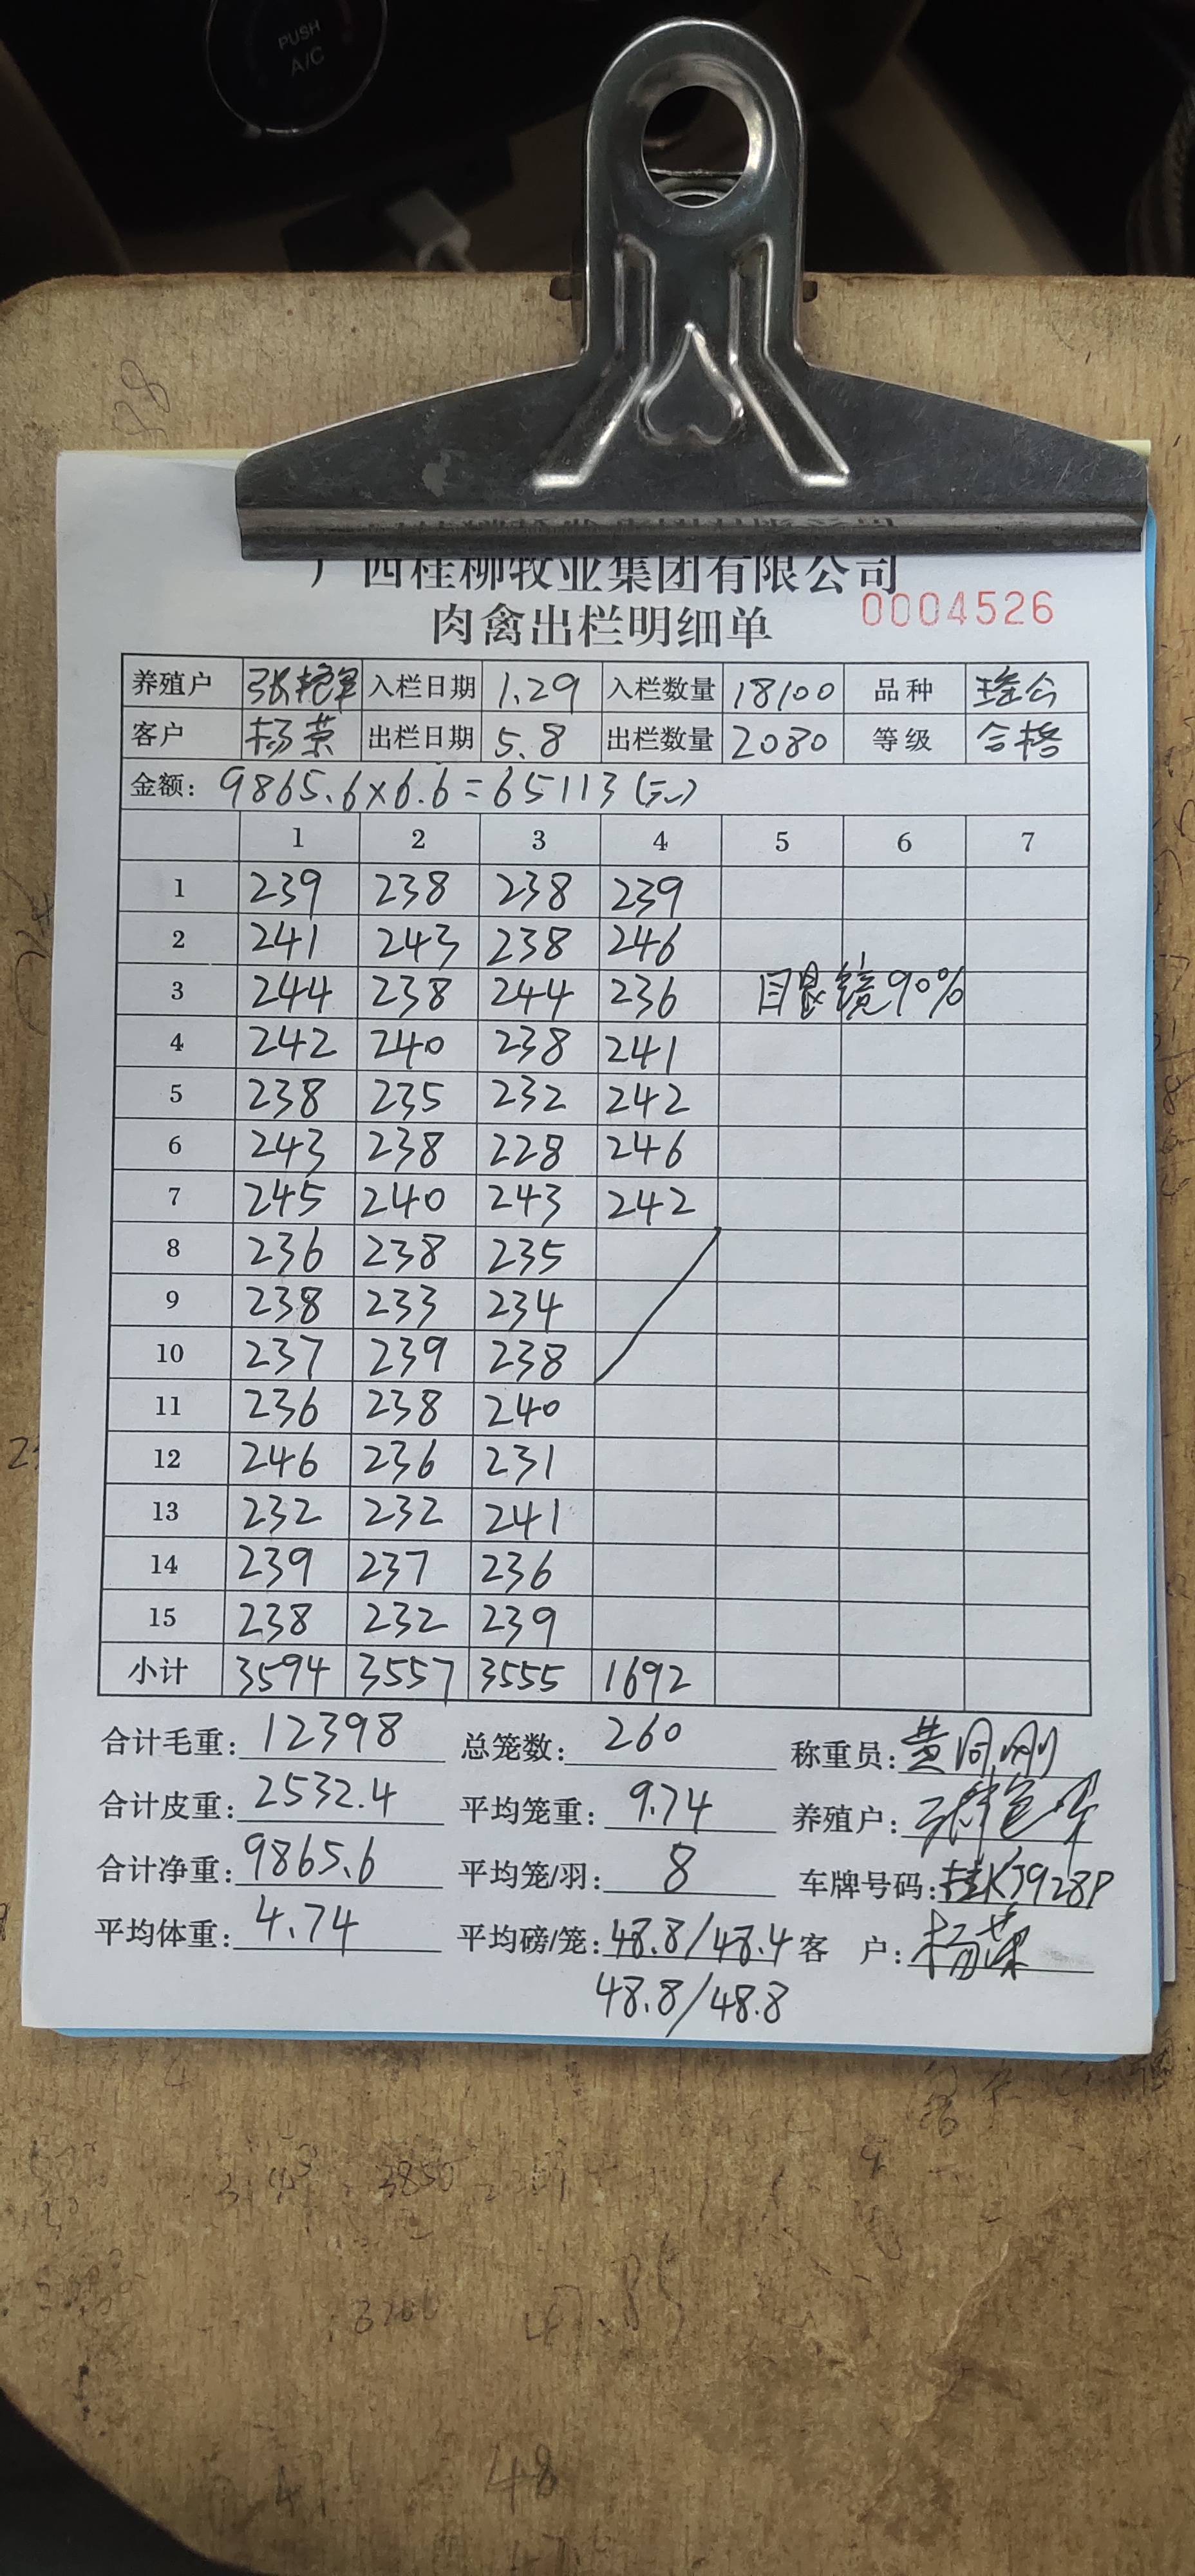 PUSH
A/C
广西桂柳牧业集团有限公司
肉禽出栏明细单 0004526
养殖户 张艳军 入栏日期 1.29 入栏数量 18100 品种 瑶公
客户 杨荣 出栏日期 5.8 出栏数量 2080 等级 合格
金额: 9865.6×6.6=65113(元)
1 2 3 4 5 6 7
1 239 238 238 239
2 241 243 238 246
3 244 238 244 236 目眼镜90%
4 242 240 238 241
5 238 235 232 242
6 243 238 228 246
7 245 240 243 242
8 236 238 235
9 238 233 234
10 237 239 238
11 236 238 240
12 246 236 231
13 232 232 241
14 239 237 236
15 238 232 239
小计 3594 3557 3555 1692
合计毛重: 12398 总笼数: 260 称重员: 黄同刚
合计皮重: 2532.4 平均笼重: 9.74 养殖户:
合计净重: 9865.6 平均笼/羽: 8 车牌号码: 桂KJ928P
平均体重: 4.74 平均磅/笼: 48.8/48.4 客 户: 杨荣
48.8/48.8
48